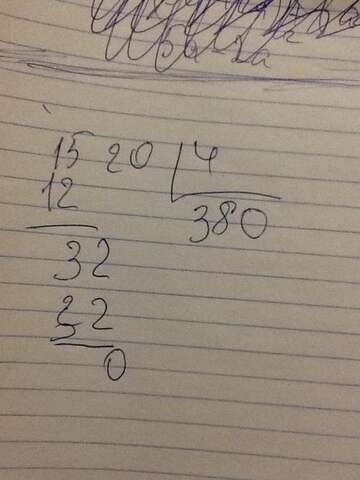 1520 4
12 380
32
32
0